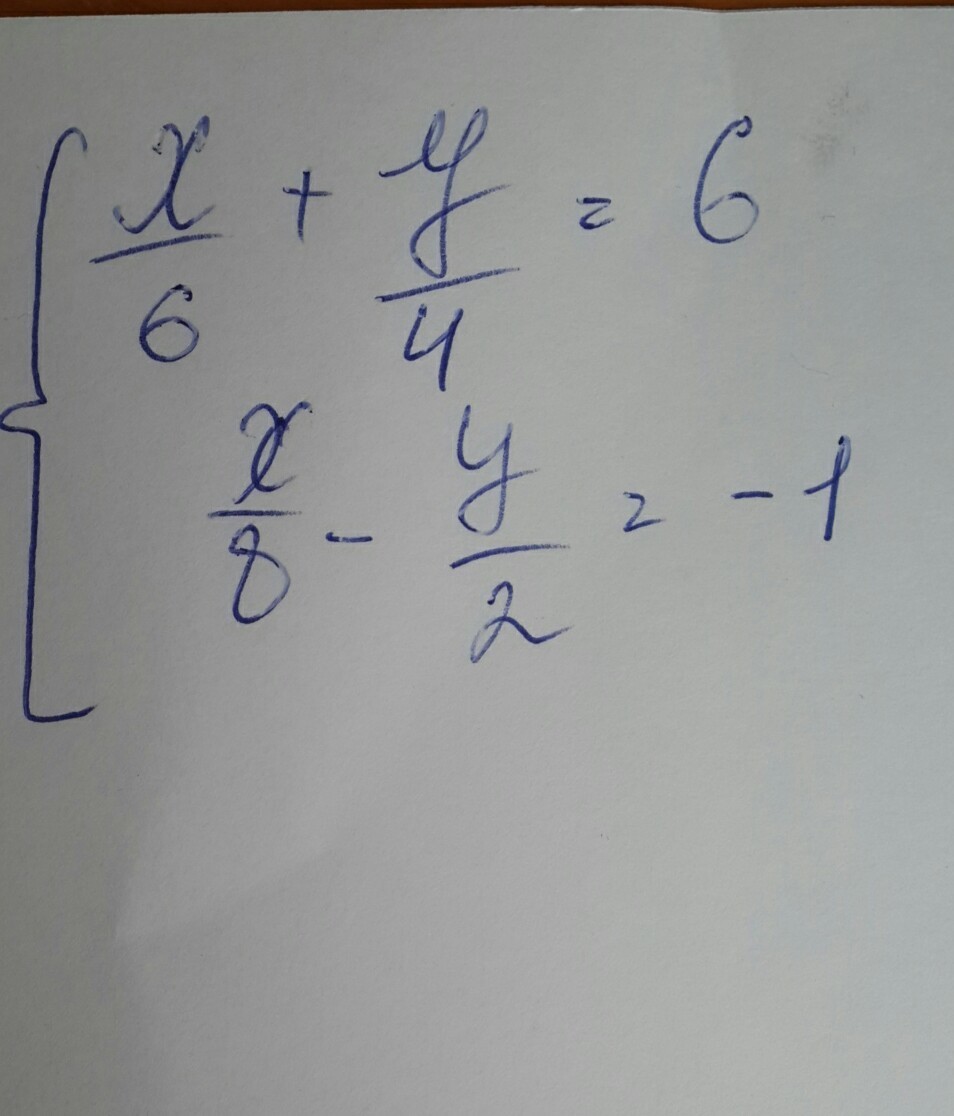 x/6 + y/4 = 6
x/8 - y/2 = -1